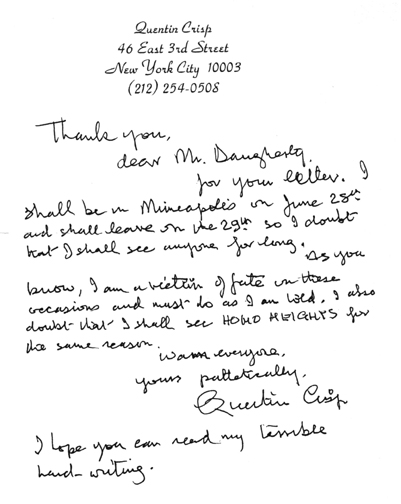 Quentin Crisp
46 East 3rd Street
New York City 10003
(212) 254-0508
Thank you,
dear Mr. Daugherty,
for your letter. I
shall be in Mineapolis on June 28th
and shall leave on the 29th so I doubt
that I shall see anyone for long.
As you
know, I am a victim of fate on these
occasions and must do as I am told. I also
doubt that I shall see HOMO HEIGHTS for
the same reason.
Warn everyone,
yours pathetically,
Quentin Crisp
I hope you can read my terrible
hand-writing.